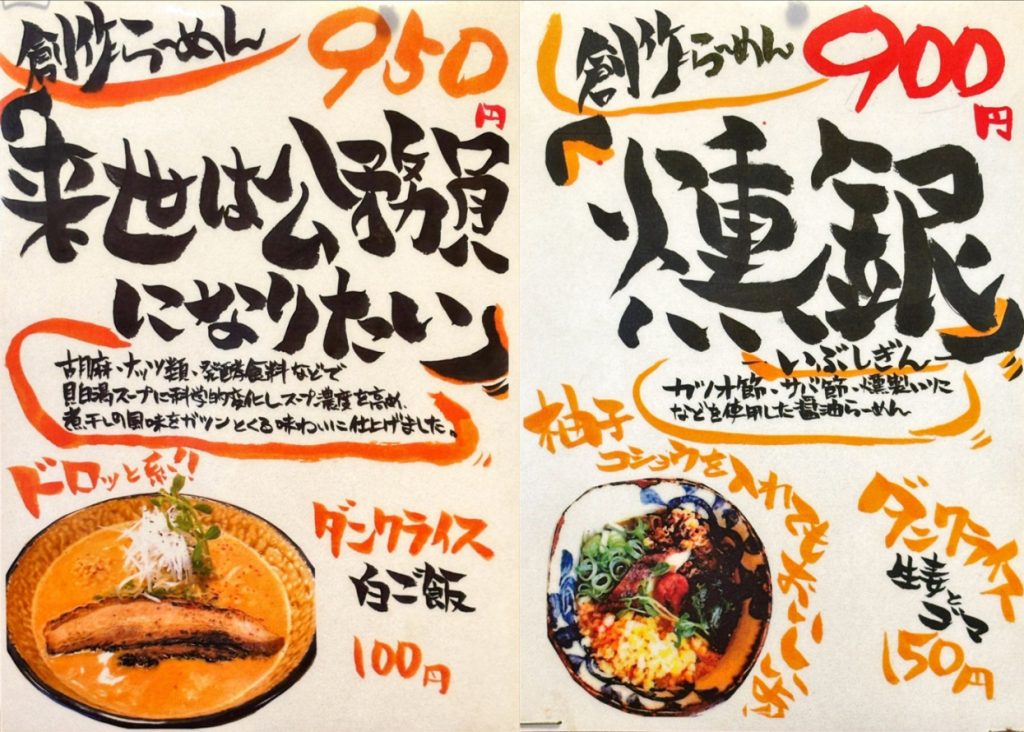 創作らーめん
950円
『来世は公務員
になりたい』
胡麻・ナッツ類・発酵食料などで
貝白湯スープに科学的変化しスープ濃度を高め、
煮干しの風味をガツンとくる味わいに仕上げました。
ドロッと系!!
ダンクライス
白ご飯
100円
創作らーめん
900円
『燻銀』
いぶしぎん
カツオ節・サバ節・燻製いりこ
などを使用した醤油らーめん
柚子
コショウを入れてもおいしい
ダンクライス
生麦と
ゴマ
150円